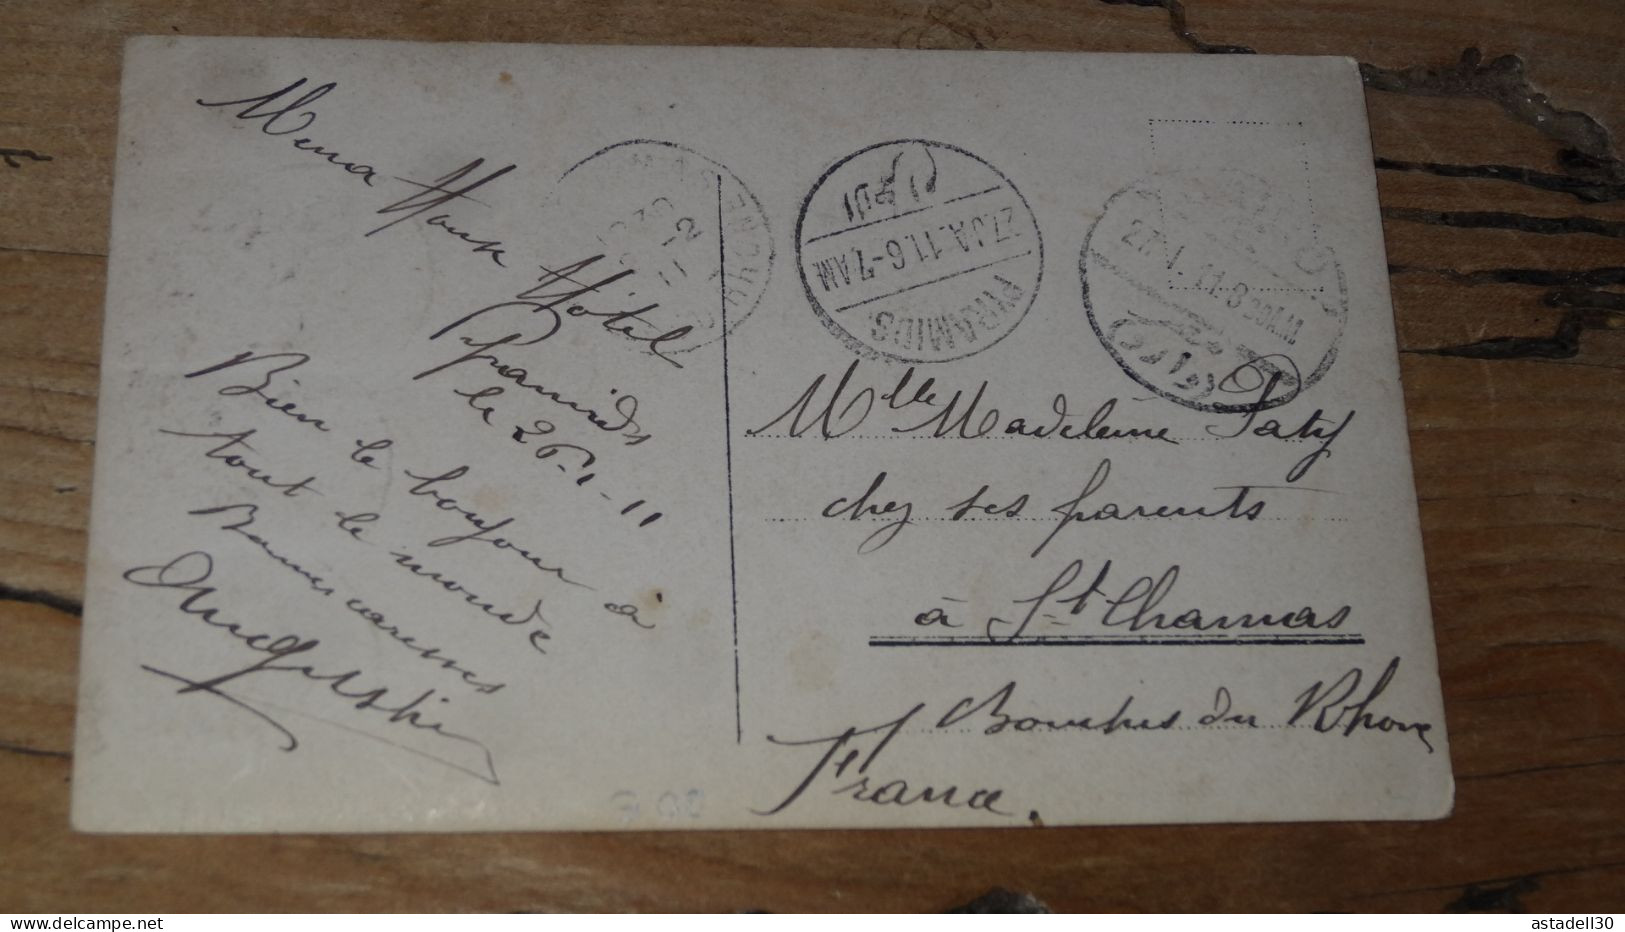 Mena House Hôtel
Pyramids
le 26-1-11
Bien le bonjour à
tout le monde
27.JA.11.6-7AM
PYRAMIDS
27.I.11.8
Mlle Madeleine Paty
chez ses parents
à St Chamas
Bouches du Rhone
France.
30 F
delcampe.net
astadell30